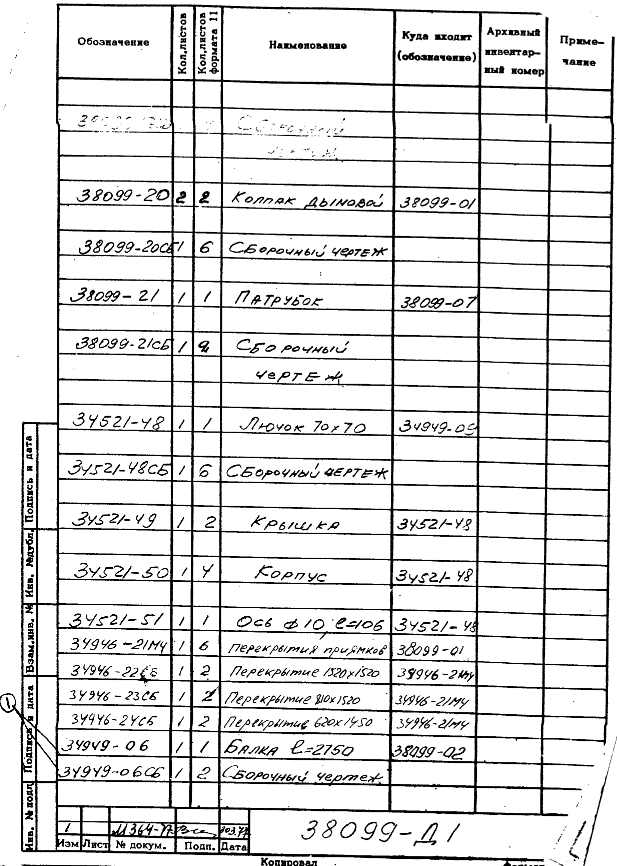 Обозначение Кол.листов Кол.листов формата 11 Наименование Куда входит (обозначение) Архивный инвентарный номер Примечание
Сборочный
чертеж
38099-20 2 2 Колпак дымовой 38099-01
38099-20СБ 1 6 Сборочный чертеж
38099-21 1 1 Патрубок 38099-07
38099-21СБ 1 2 Сборочный
чертеж
34521-48 1 1 Лючок 70x70 34949-09
34521-48СБ 1 6 Сборочный чертеж
34521-49 1 2 Крышка 34521-48
34521-50 1 4 Корпус 34521-48
34521-51 1 1 Ось ф10, l=106 34521-48
34946-21МЧ 1 6 Перекрытия приямков 38099-01
34946-22СБ 1 2 Перекрытие 1520x1520 34946-21МЧ
34946-23СБ 1 2 Перекрытие 810x1520 34946-21МЧ
34946-24СБ 1 2 Перекрытие 620x1450 34946-21МЧ
34949-06 1 1 Балка l=2750 38099-02
34949-06СБ 1 2 Сборочный чертеж
1
Инв. № подл. Подпись и дата Взам.инв. № Инв. №дубл. Подпись и дата
1 М364-77
Изм Лист № докум. Подп. Дата
38099-Д1
Копировал